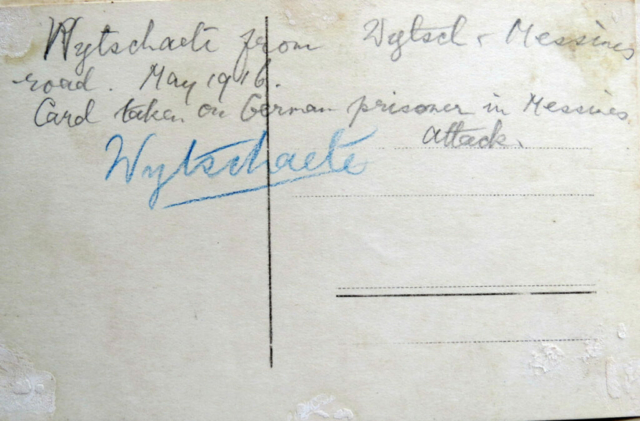 Wytschaete from Wytsch & Messines
road. May 1916.
Card taken on German prisoner in Messines
attack.
Wytschaete